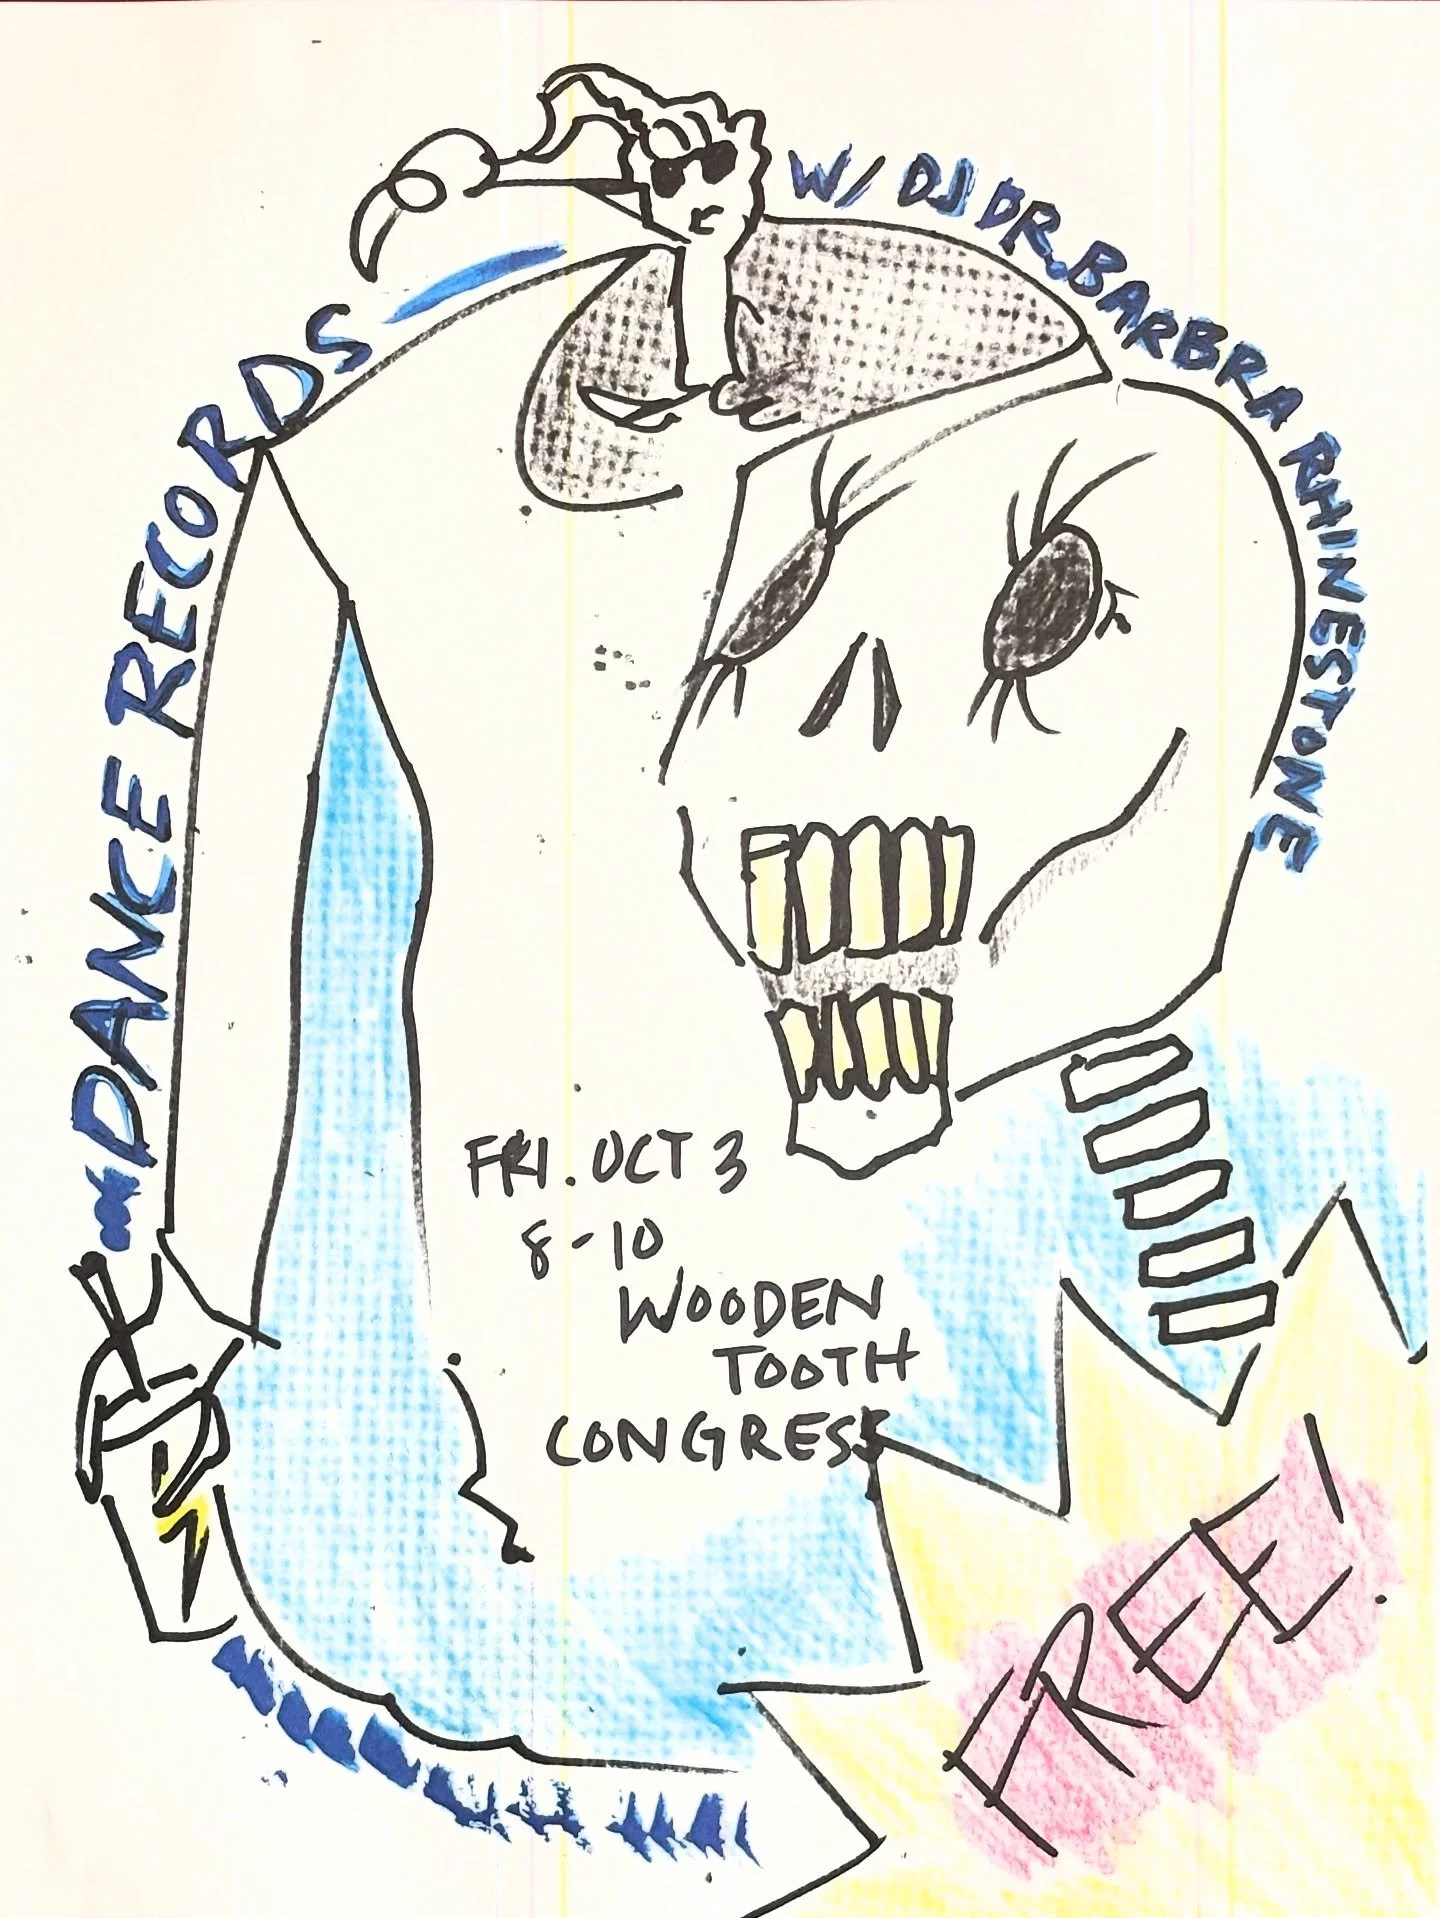 DANCE RECORDS
W/ DJ DR. BARBRA RHINESTONE
FRI. OCT 3
8-10
WOODEN
TOOTH
CONGRESS
FREE!